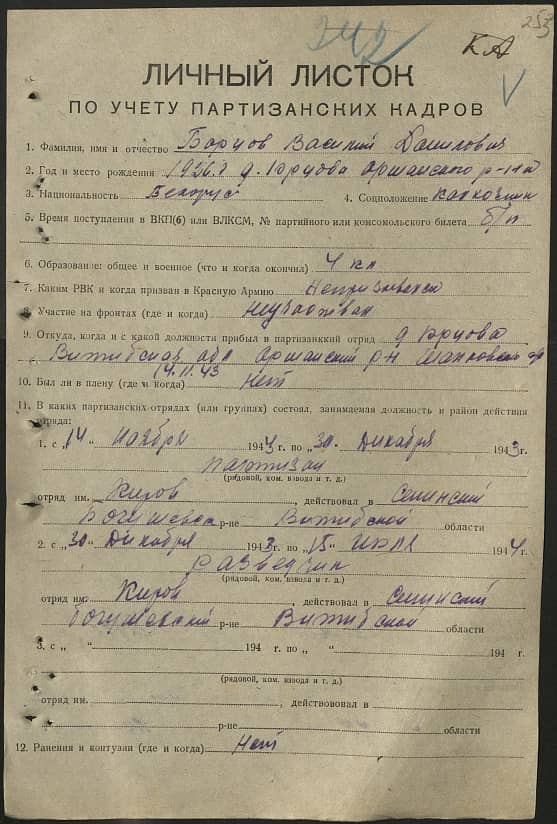 253
342
КА
V
ЛИЧНЫЙ ЛИСТОК
ПО УЧЕТУ ПАРТИЗАНСКИХ КАДРОВ
1. Фамилия, имя и отчество Борцов Василий Данилович
2. Год и место рождения 1926 г д. Юрцова Оршанского р-на
3. Национальность Белорус 4. Соцположение колхозник
5. Время поступления в ВКП(б) или ВЛКСМ, № партийного или комсомольского билета б/п
6. Образование: общее и военное (что и когда окончил) 4 кл
7. Каким РВК и когда призван в Красную Армию Непризывался
8. Участие на фронтах (где и когда)
9. Откуда, когда и с какой должности прибыл в партизанский отряд д Юрцова
Витибская обл Оршанский рн
14.11.43
10. Был ли в плену (где и когда) Нет
11. В каких партизанских отрядах (или группах) состоял, занимаемая должность и район действия
отряда:
1. с „14" Ноября 1943 г. по „30" Декабря 1943 г.
партизан
(рядовой, ком. взвода и т. д.)
отряд им. Киров, действовал в Сенинский
р-не Витибской области
2. с „30" Декабря 1943 г. по „15" Июля 1944 г.
разведчик
(рядовой, ком. взвода и т. д.)
отряд им. Киров, действовал в Сенинский
Богушевский р-не Витибской области
3. с „ " 194 г. по „ " 194 г.
(рядовой, ком. взвода и т. д.)
отряд им. , действовал в
р-не области
12. Ранения и контузии (где и когда) Нет